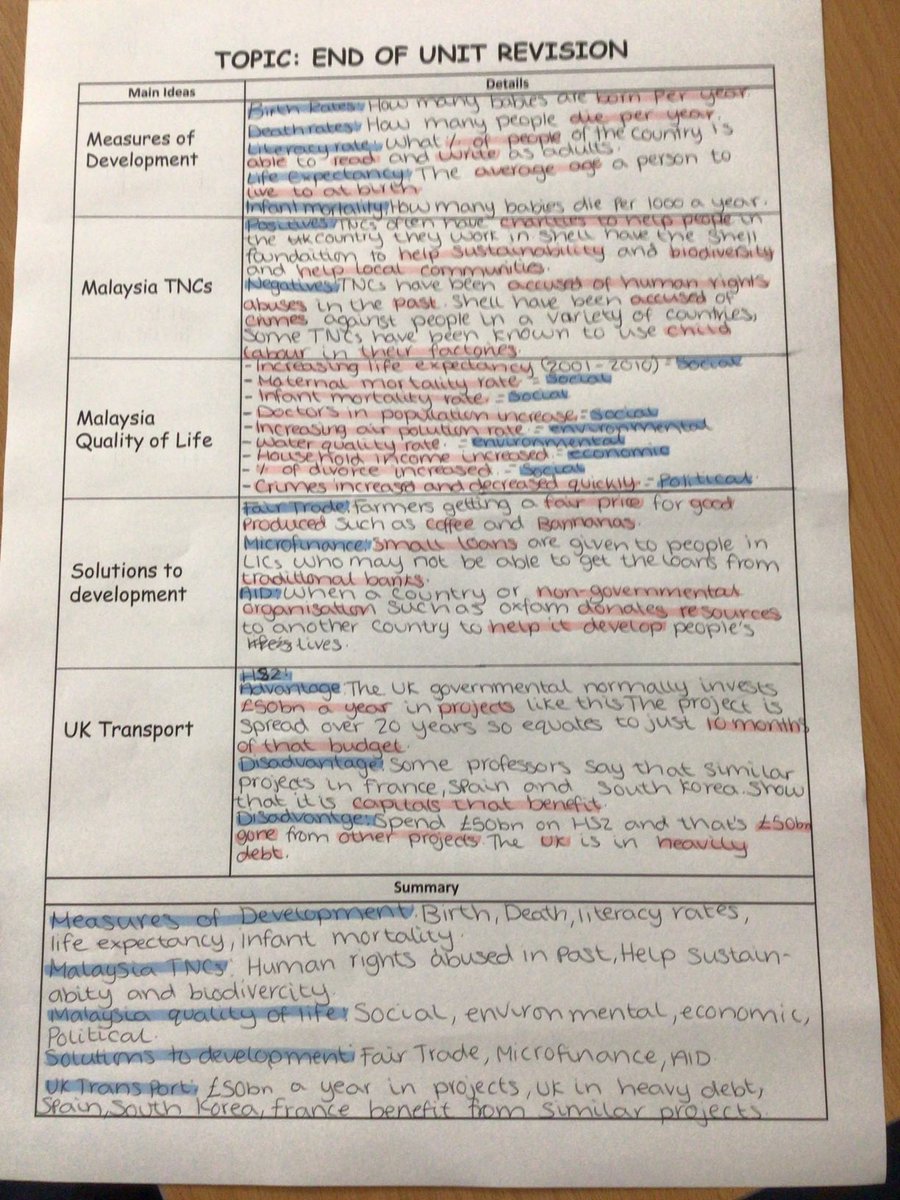 TOPIC: END OF UNIT REVISION
Main Ideas
Details
Measures of
Development
Birth Rates: How many babies are born per year.
Death rates: How many people die per year.
Literacy rate: what % of people of the country is
able to read and write as adults.
Life Expectancy: The average age a person to
live to at birth
Infant mortality: How many babies die per 1000 a year.
Malaysia TNCs
Positives: TNCs often have charities to help people in
the country they work in. Shell have the Shell
foundaition to help sustainability and biodiversity
and help local communities.
Negatives: TNCs have been accused of human rights
abuses in the past. Shell have been accused of
crimes against people in a variety of countries,
some TNCs have been known to use child
labour in their factories.
Malaysia
Quality of Life
- Increasing life expectancy (2001-2010) = Social
- Maternal mortality rate = Social
- Infant mortality rate. = Social
- Doctors in population increase = Social
- Increasing air polution rate = environmental
- Water quality rate. = environmental
- Household income increased = economic
- % of divorce increased. = Social
- Crimes increased and decreased quickly = Political
Solutions to
development
Fair Trade: Farmers getting a fair price for good
Produced such as coffee and Bannanas.
Microfinance: Small loans are given to people in
LICs who may not be able to get the loans from
traditional banks.
AID: When a country or non-governmental
organisation such as oxfam donates resources
to another country to help it develop people's
lives.
UK Transport
HS2:
Advantage: The UK governmental normally invests
£50bn a year in projects like this. The project is
spread over 20 years so equates to just 10 months
of that budget.
Disadvantage: Some professors say that similar
projects in france, Spain and South Korea. Show
that it is capitals that benefit.
Disadvantge: Spend £50bn on HS2 and that's £50bn
gone from other projects. The UK is in heavilly
debt.
Summary
Measures of Development: Birth, Death, literacy rates,
life expectancy, infant mortality.
Malaysia TNCs: Human rights abused in Past, Help Sustain-
abity and biodivercity
Malaysia quality of life: Social, environmental, economic,
Political.
Solutions to development: Fair Trade, Microfinance, AID
UK TransPort: £50bn a year in projects, UK in heavy debt,
Spain, South Korea, france benefit from similar projects.